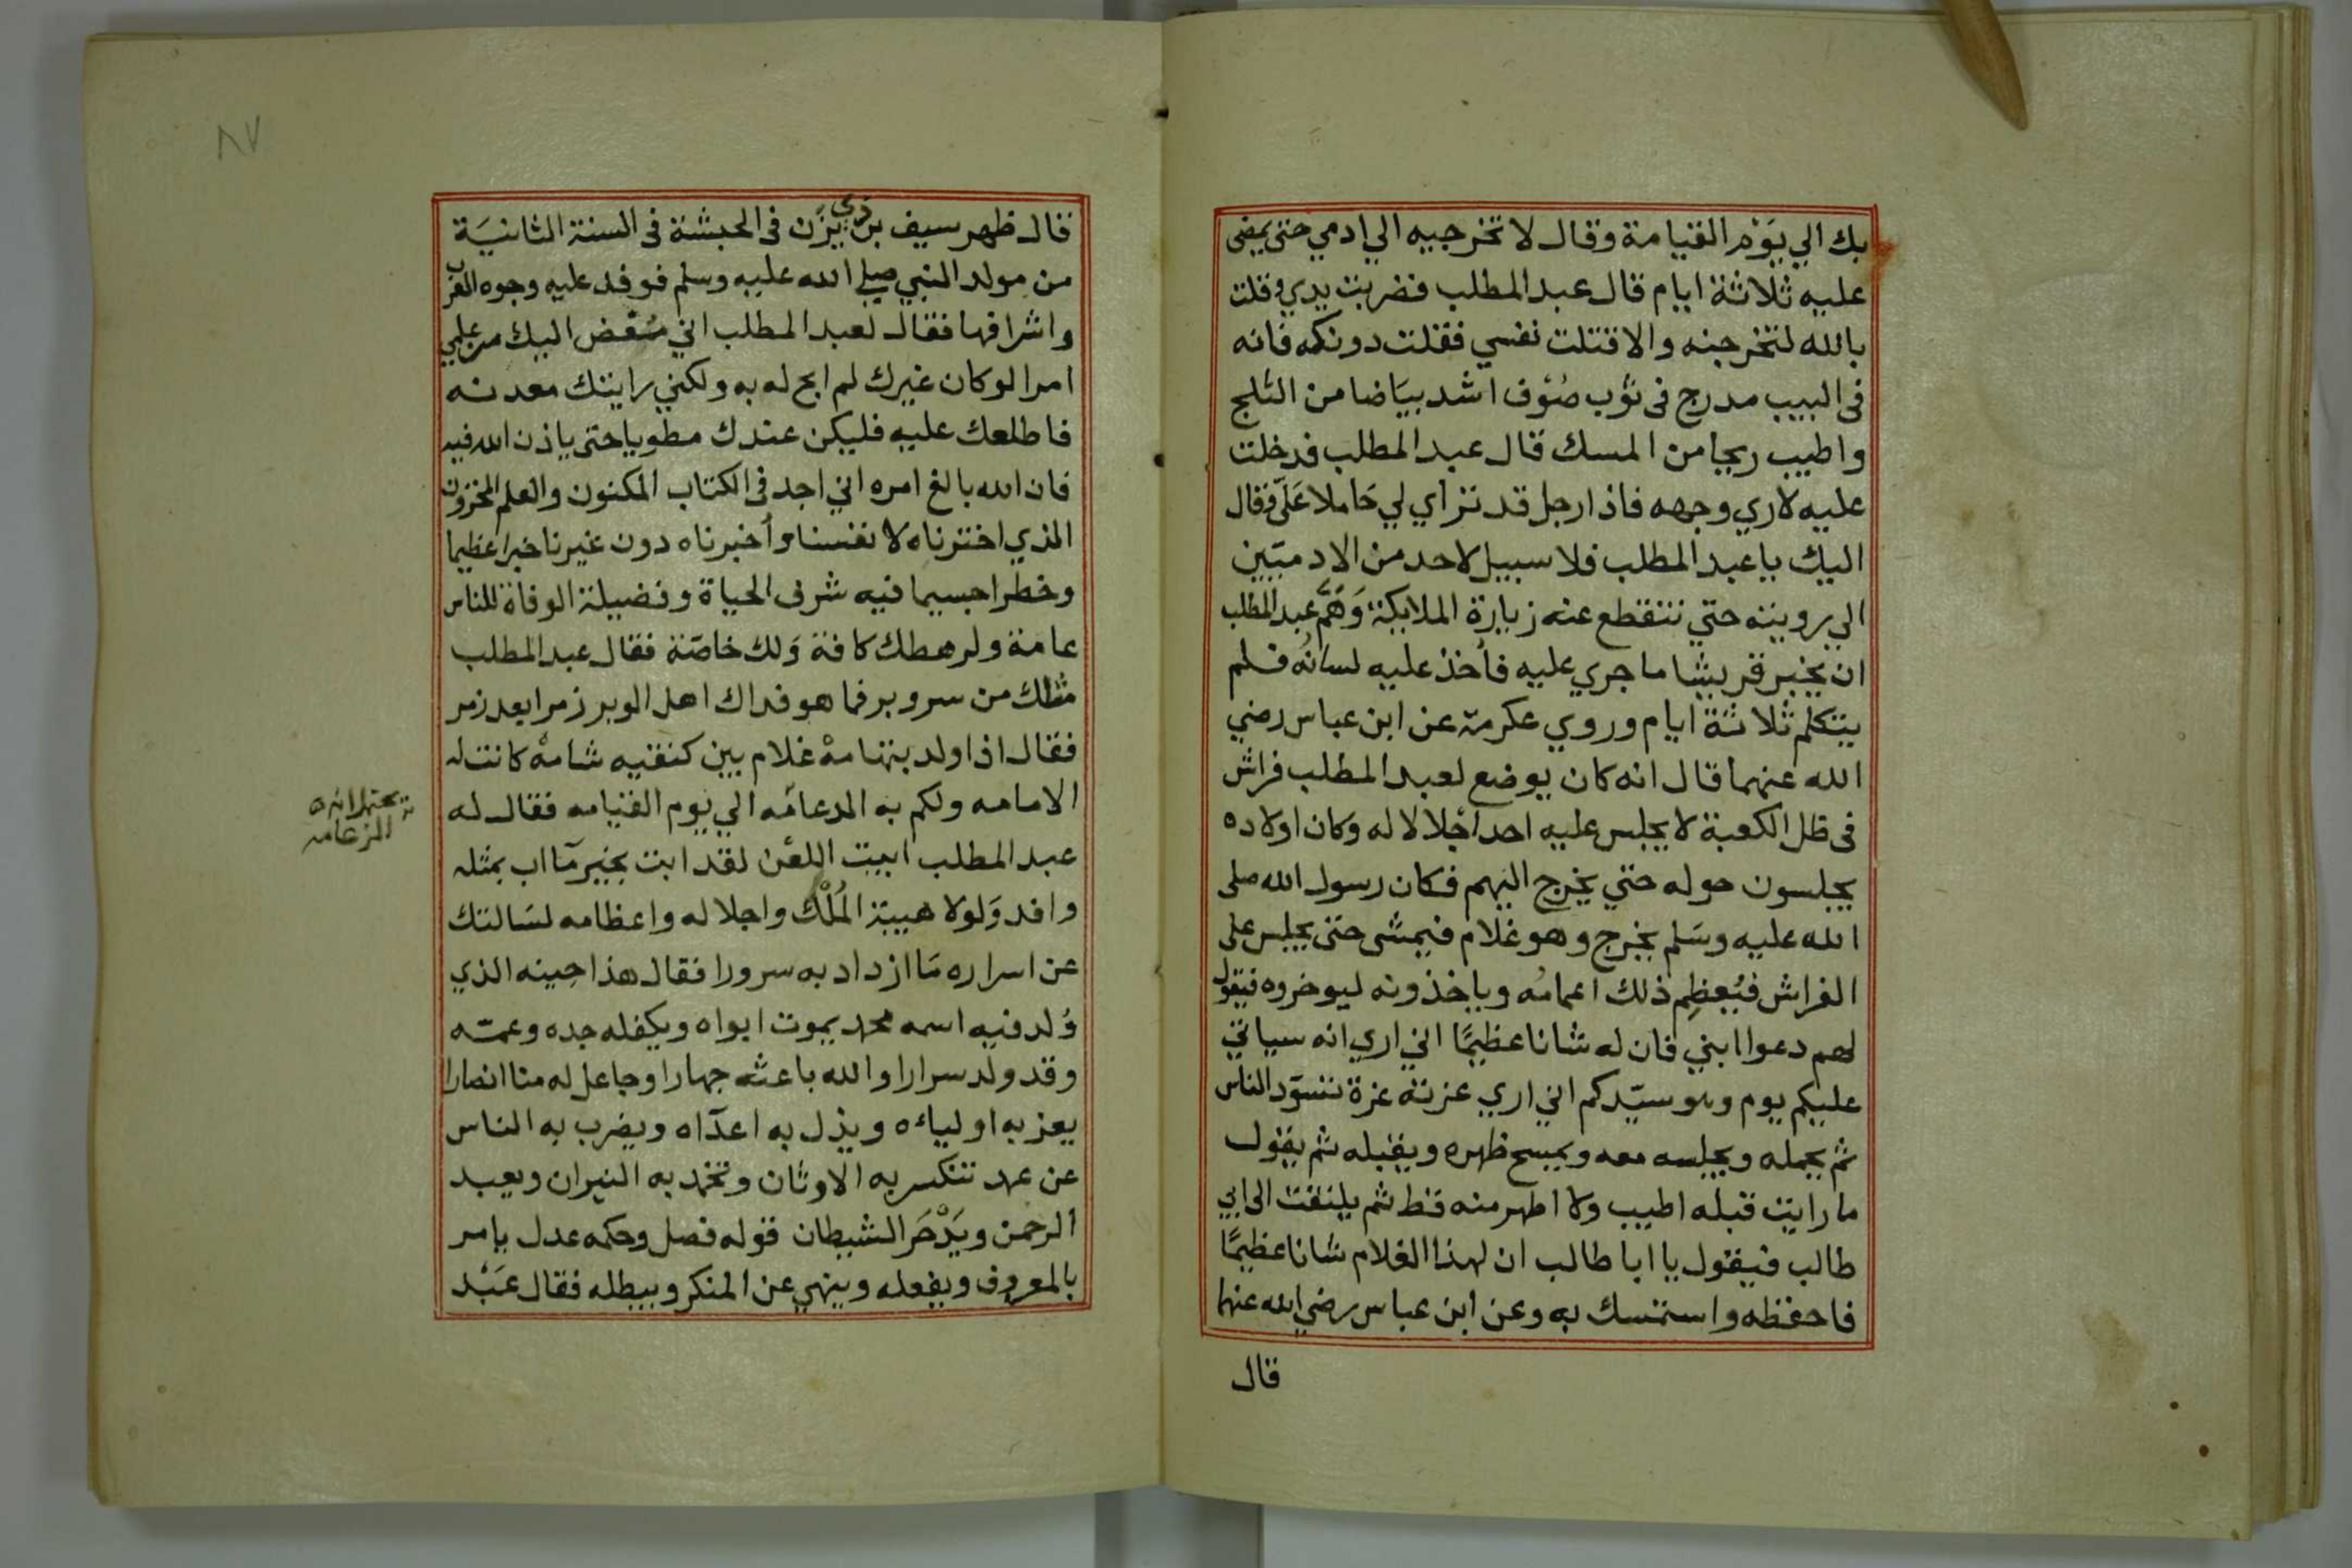 بك الي يَوْم القيامة وقال لا تخرجيه الي ادمي حتى يمضى
عليه ثلاثة ايام قال عبد المطلب فضربت يدي وقلت
بالله لتخرجنه والا قتلت نفسي فقلت دونكه فانه
فى البيت مدرج فى ثوب صُوف اشد بيَاضا من الثلج
واطيب ريحا من المسك قال عبد المطلب فدخلت
عليه لاري وجهه فاذا رجل قد تراي لي حَاملا عَلَيّ وقال
اليك يا عبد المطلب فلا سبيل لاحد من الادميّين
الي رويته حتي تنقطع عنه زيارة الملايكة وَهَمَّ عبد المطلب
ان يخبر قريشا ما جري عليه فأخذ عليه لسانُه فلم
يتكلم ثلاثة ايام وروي عكرمة عن ابن عباس رضي
الله عنهما قال انه كان يوضع لعبد المطلب فراش
فى ظل الكعبة لا يجلس عليه احد اجْلالا له وكان اولاده
يجلسون حوله حتي يخرج اليهم فكان رسول الله صلى
الله عليه وسَلم يخرج وهو غلام فيمشى حتى يجلس على
الفراش فيُعظِم ذلك اعمامُه وياخذونه ليوخروه فيقول
لهم دعوا ابني فان له شانا عظيمًا اني اري انه سياتي
عليكم يوم وهو سيّدكم اني اري غرته غرة تسوّد الناس
ثم يحمله ويجلسه معه ويمسح ظهره ويقبله ثم يقول
ما رايت قبله اطيب ولا اطهر منه قط ثم يلتفت الى ابي
طالب فيقول يا ابا طالب ان لهذا الغلام شانا عظيمًا
فاحفظه واستمسك به وعن ابن عباس رضي الله عنهما
قال
٨٧
قال ظهر سيف بن ذي يَزَن فى الحبشة فى السنة الثانيَة
من مولد النبي صلي الله عليه وسلم فوفد عليه وجوه العرب
واشرافها فقال لعبد المطلب اني مُفْض اليك من علمي
امرا لو كان غيرك لم ابح له به ولكني رايتك معدنه
فاطلعك عليه فليكن عندك مطويا حتى ياذن الله فيه
فان الله بالغ امره اني اجد فى الكتاب المكنون والعلم المخزون
الذي اخترناه لانفسنا وأخبرناه دون غيرنا خبرا عظيما
وخطرا جسيما فيه شرف الحياة وفضيلة الوفاة للناس
عامة ولرهطك كافة وَلك خاصّة فقال عبد المطلب
مثلك من سر وبر فما هو فداك اهل الوبر زمرا بعد زمر
فقال اذا ولد بتهامهْ غلام بين كتفيه شامهْ كانت له
الامامه ولكم به الدعامَه الي يوم القيامه فقال له
يحتمل انه
الزعامه
عبد المطلب ابيت اللعْن لقد ابت بخير مَا اب بمثله
وافد وَلولا هيبة المُلْك واجلاله واعظامه لسَالتك
عن اسراره مَا ازداد به سرورا فقال هذا حِينه الذي
وُلد فيه اسمه محمد يموت ابواه ويكفله جده وعمّه
وقد ولد سرارا والله باعثه جهارا وجاعل له منا انصارا
يعز به اولياءه ويذل به اعدَاه ويضرب به الناس
عن عهد تنكسر به الاوثان وتخمد به النيران ويعبد
الرحمن ويَدْحَر الشيطان قوله فصل وحكمه عدل يامر
بالمعروف ويفعله وينهي عن المنكر ويبطله فقال عَبْد